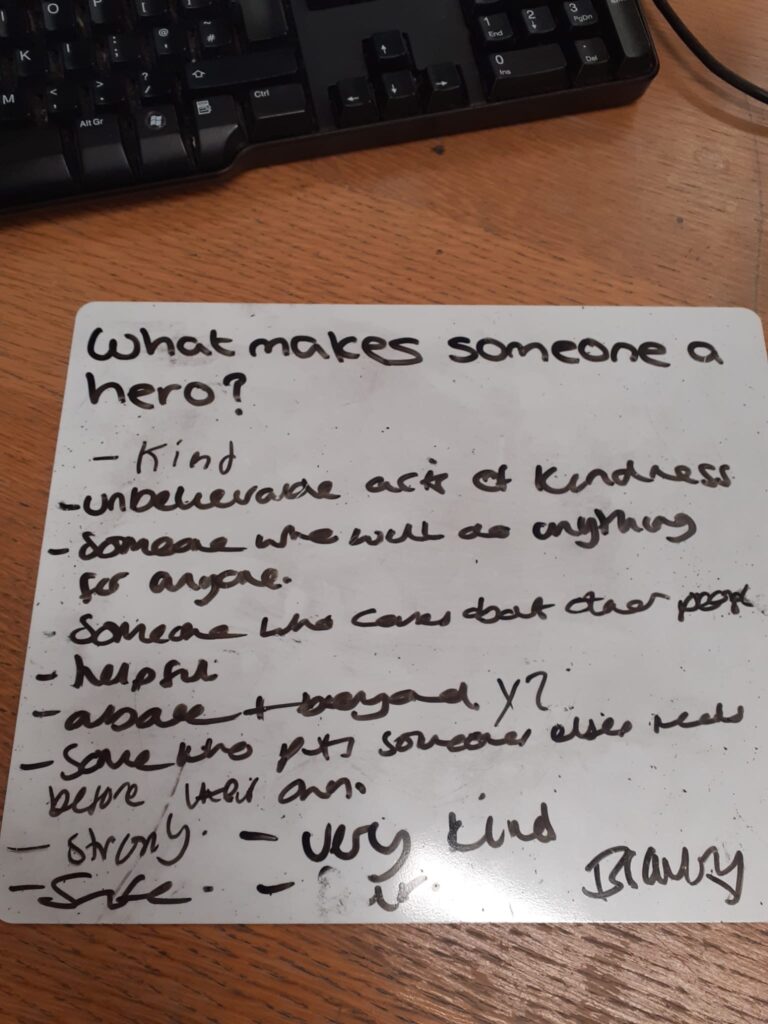 O P
K L : @ ' ~ #
M < , > . ? /
Alt Gr Ctrl
1 End 2 3 PgDn
0 Ins . Del
What makes someone a
hero?
- Kind
- unbelievable acts of kindness
- Someone who will do anything
for anyone.
Someone who cares about other people
- helpful
- above + beyond. Y7
- Some who puts someones elses needs
before their own.
- Strong. - very kind
- Safe. -
Bravery